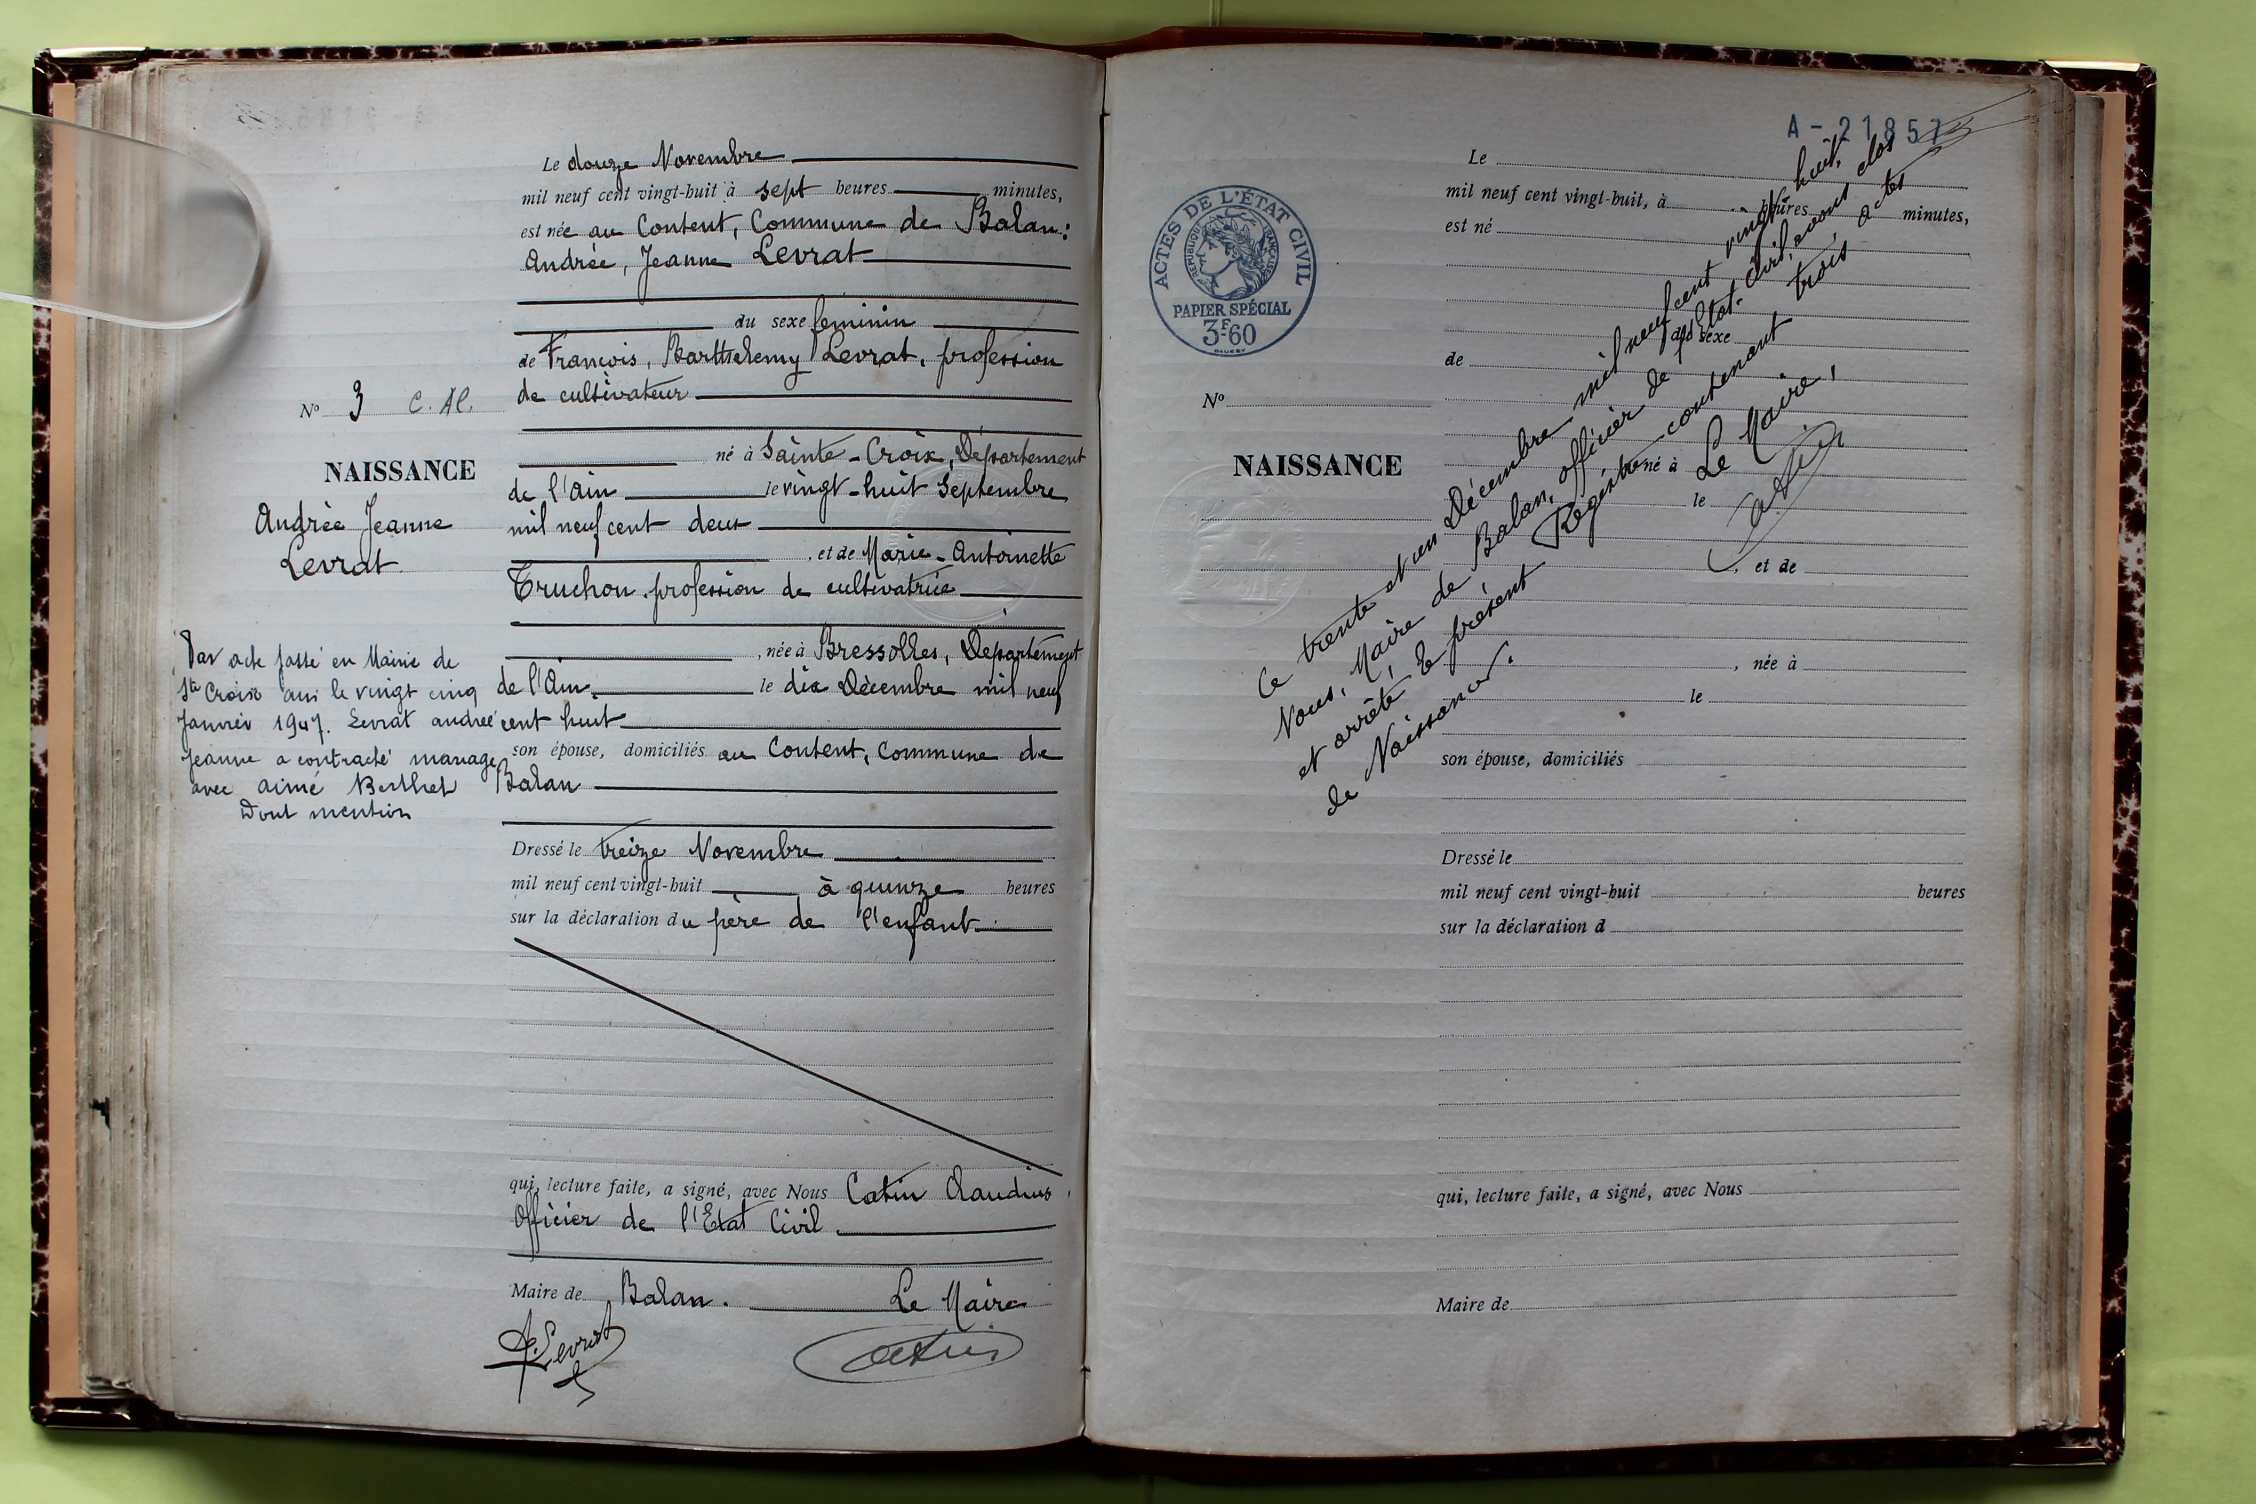 Le douze Novembre
mil neuf cent vingt-huit à sept heures minutes,
est née au Content, Commune de Balan :
Andrée, Jeanne Levrat
du sexe feminin
de François, Barthelemy Levrat, profession
de cultivateur
N° 3 C. AC.
né à Sainte-Croix, Département
NAISSANCE
de l'Ain le vingt-huit Septembre
Andrée Jeanne
mil neuf cent deux
Levrat
, et de Marie-Antoinette
Truchon, profession de cultivatrice
, née à Bressolles, Département
de l'Ain, le dix Décembre mil neuf
cent huit
son épouse, domiciliés au Content, Commune de
Balan
Par acte passé en Mairie de
Ste Croix Ain le vingt cinq
Janvier 1947. Levrat andrée
Jeanne a contracté mariage
avec aimé Berthet
Dont mention
Dressé le treize Novembre
mil neuf cent vingt-huit à quinze heures
sur la déclaration du père de l'enfant
qui, lecture faite, a signé, avec Nous Catin Claudius,
Officier de l'Etat Civil
Maire de Balan. Le Maire
Levrat
Catin
A-21857
ACTES DE L'ÉTAT CIVIL
RÉPUBLIQUE FRANÇAISE
PAPIER SPÉCIAL
3F60
Le
mil neuf cent vingt-huit, à heures minutes,
est né
du sexe
de
N°
NAISSANCE
né à
le
, et de
, née à
le
son épouse, domiciliés
Dressé le
mil neuf cent vingt-huit heures
sur la déclaration d
qui, lecture faite, a signé, avec Nous
Maire de
Ce trente et un Décembre mil neuf cent vingt-huit,
Nous, Maire de Balan, officier de l'Etat-Civil, avons clos
et arrêté, le présent Registre contenant trois actes
de Naissances.
Le Maire,
Catin